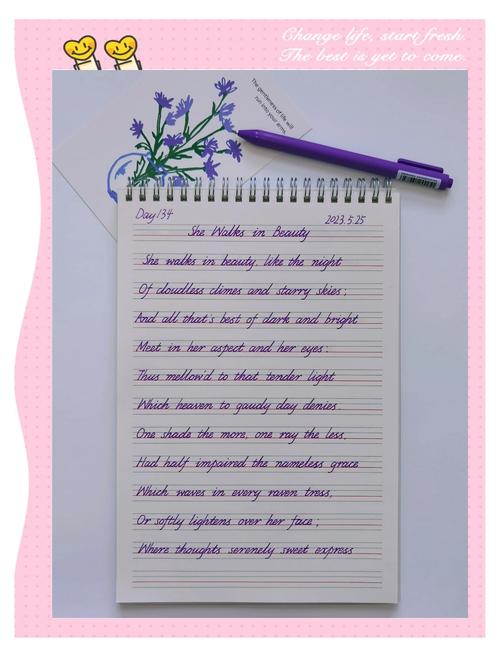 Change life, start fresh.
The best is yet to come.
The gentleness of life will
run into your arms.
Day134
2023.5.25
She Walks in Beauty
She walks in beauty, like the night
Of cloudless climes and starry skies;
And all that's best of dark and bright
Meet in her aspect and her eyes:
Thus mellow'd to that tender light
Which heaven to gaudy day denies.
One shade the more, one ray the less,
Had half impaired the nameless grace
Which waves in every raven tress,
Or softly lightens over her face;
Where thoughts serenely sweet express